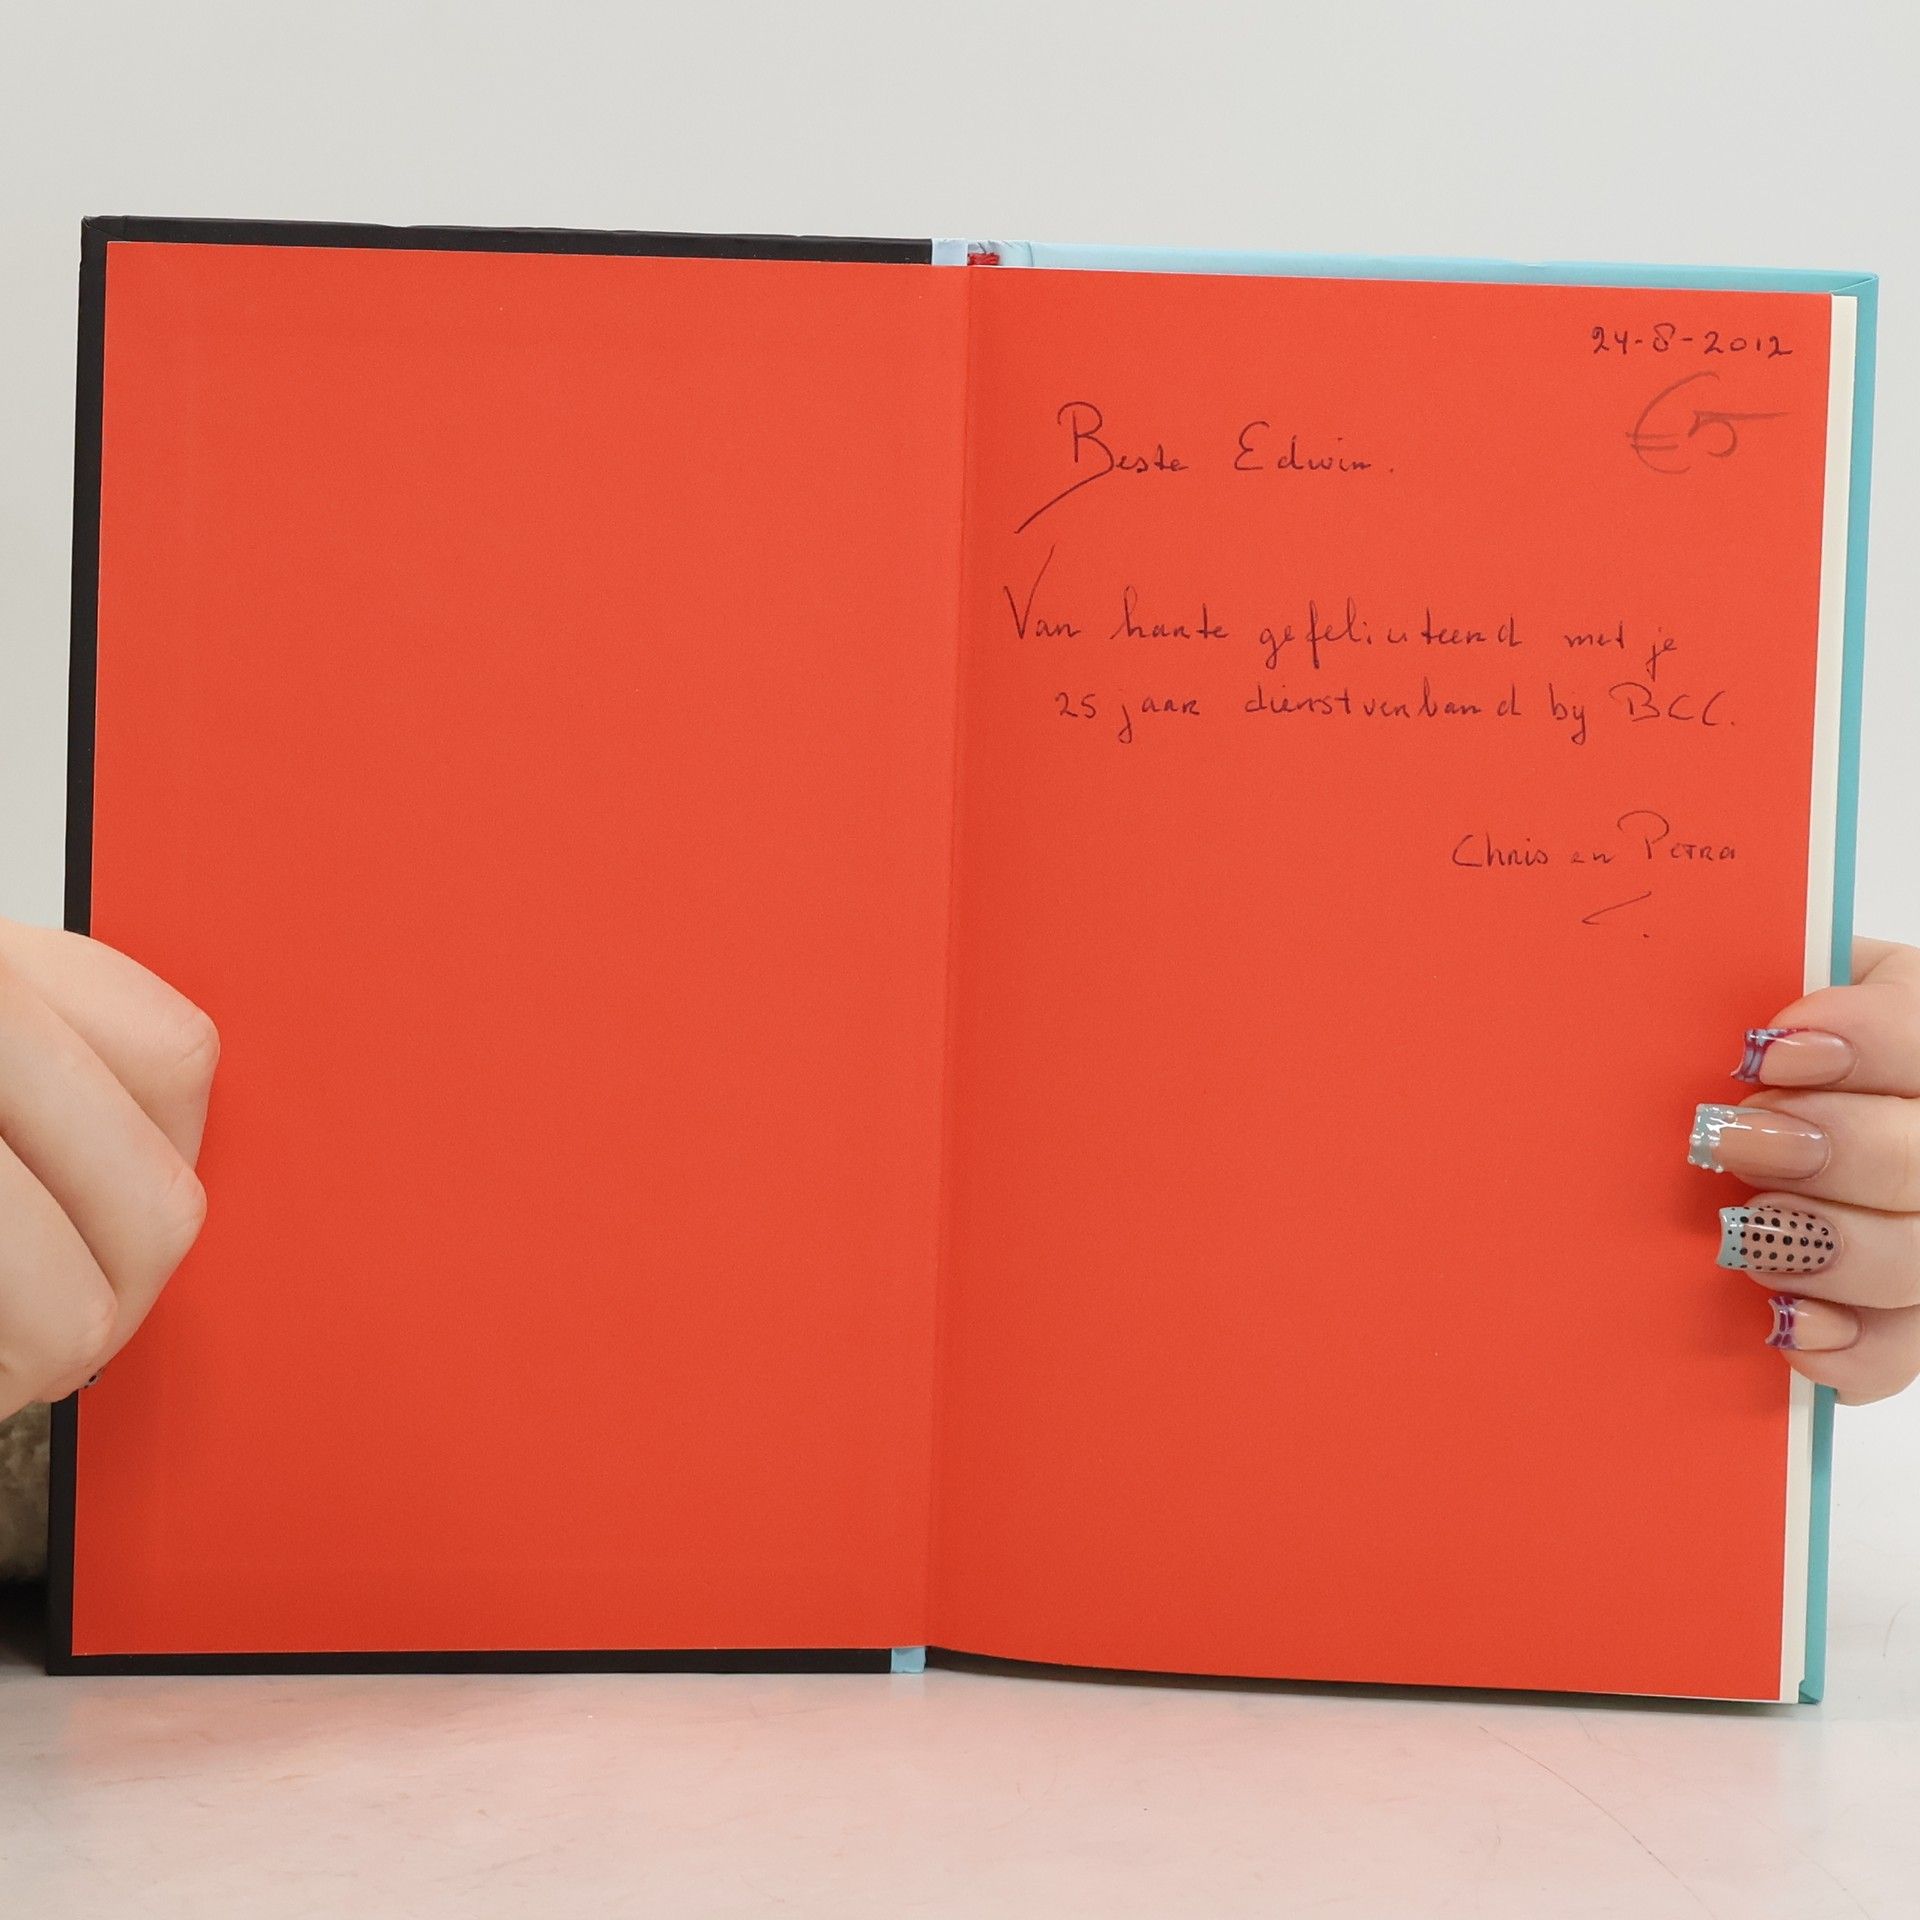 24-8-2012
€5
Beste Edwin.
Van harte gefeliciteerd met je
25 jaar dienstverband bij BCC.
Chris en Petra